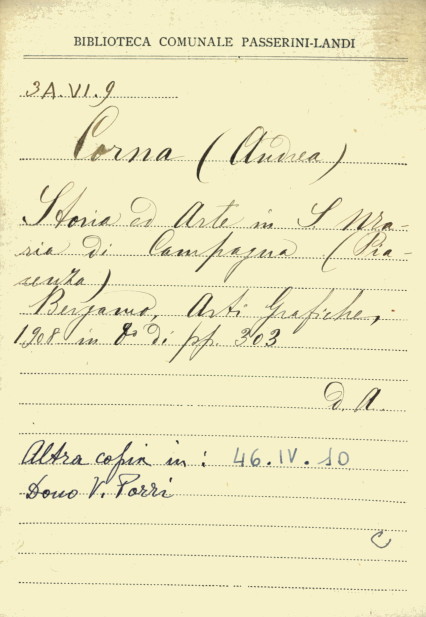 BIBLIOTECA COMUNALE PASSERINI-LANDI
3A.VI.9
Corna (Andrea)
Storia ed Arte in S Ma-
ria di Campagna (Pia-
cenza)
Bergamo, Arti Grafiche,
1908 in 8º di pp. 303
d. A.
Altra copia in: 46.IV.10
Dono V. Porri
C